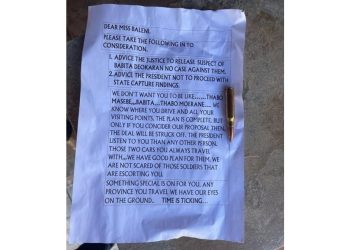 DEAR MISS BALENI,
PLEASE TAKE THE FOLLOWING IN TO
CONSIDERATION.
1. ADVICE THE JUSTICE TO RELEASE SUSPECT OF
BABITA DEOKARAN NO CASE AGAINST THEM.
2. ADVICE THE PRESIDENT NOT TO PROCEED WITH
STATE CAPTURE FINDINGS.
WE DON'T WANT YOU TO BE LIKE.......THABO
MASEBE.....BABITA.....THABO MOKRANE..... WE
KNOW WHERE YOU DRIVE AND ALL YOUR
VISITING POINTS. THE PLAN IS COMPLETE. BUT
ONLY IF YOU CONCIDER OUR PROPOSAL THEN
THE DEAL WILL BE STRUCK OFF. THE PRESIDENT
LISTEN TO YOU THAN ANY OTHER PERSON.
THOSE TWO CARS YOU ALWAYS TRAVEL
WITH...WE HAVE GOOD PLAN FOR THEM. WE
ARE NOT SCARED OF THOSE SOLDIERS THAT
ARE ESCORTING YOU.
SOMETHING SPECIAL IS ON FOR YOU. ANY
PROVINCE YOU TRAVEL WE HAVE OUR EYES
ON THE GROUND.. TIME IS TICKING....